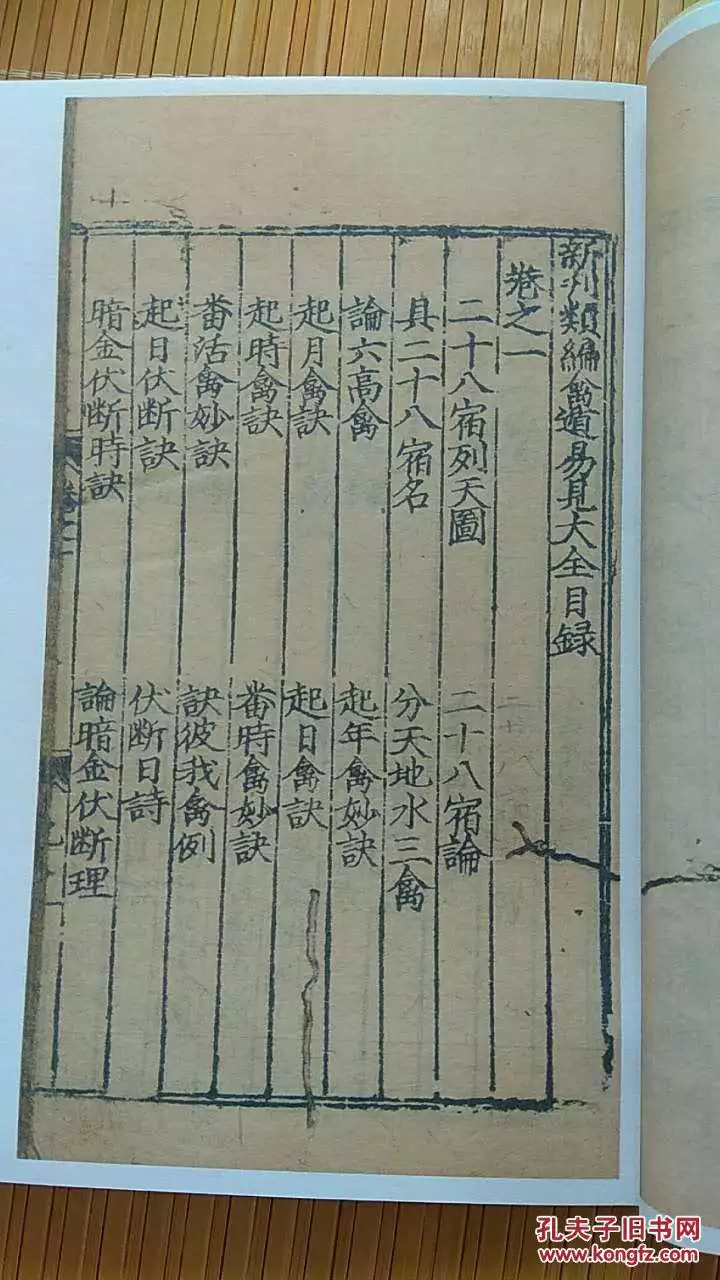 新刋類編禽遁易見大全目録
卷之一
二十八宿列天圖 二十八宿論
具二十八宿名 分天地水三禽
論六高禽 起年禽妙訣
起月禽訣 起日禽訣
起時禽訣 畨時禽妙訣
畨活禽妙訣 訣彼我禽例
起日伏断訣 伏断日詩
暗金伏断時訣 論暗金伏断理
孔夫子旧书网
www.kongfz.com